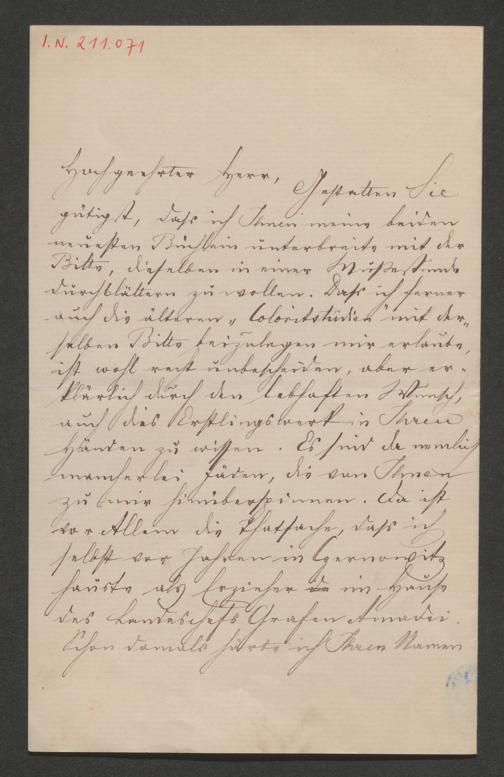 I.N. 211.071
Hochgeehrter Herr,
Gestatten Sie
gütigst, dass ich Ihnen meine beiden
neuesten Büchlein unterbreite mit der
Bitte, dieselben in einer Mußestunde
durchblättern zu wollen. Dass ich ferner
auch die älteren „Coloritstudien" mit der-
selben Bitte beizulegen mir erlaube,
ist wohl recht unbescheiden, aber er-
klärlich durch den lebhaften Wunsch,
auch dies Erstlingswerk in Ihren
Händen zu wissen. Es sind da nemlich
mancherlei Fäden, die von Ihnen
zu mir hinüberspinnen. Da ist
vor Allem die Thatsache, dass ich
selbst vor Jahren in Czernowitz
hauste als Erzieher im Hause
des Landeschefs Grafen Amadei.
Schon damals hörte ich Ihren Namen